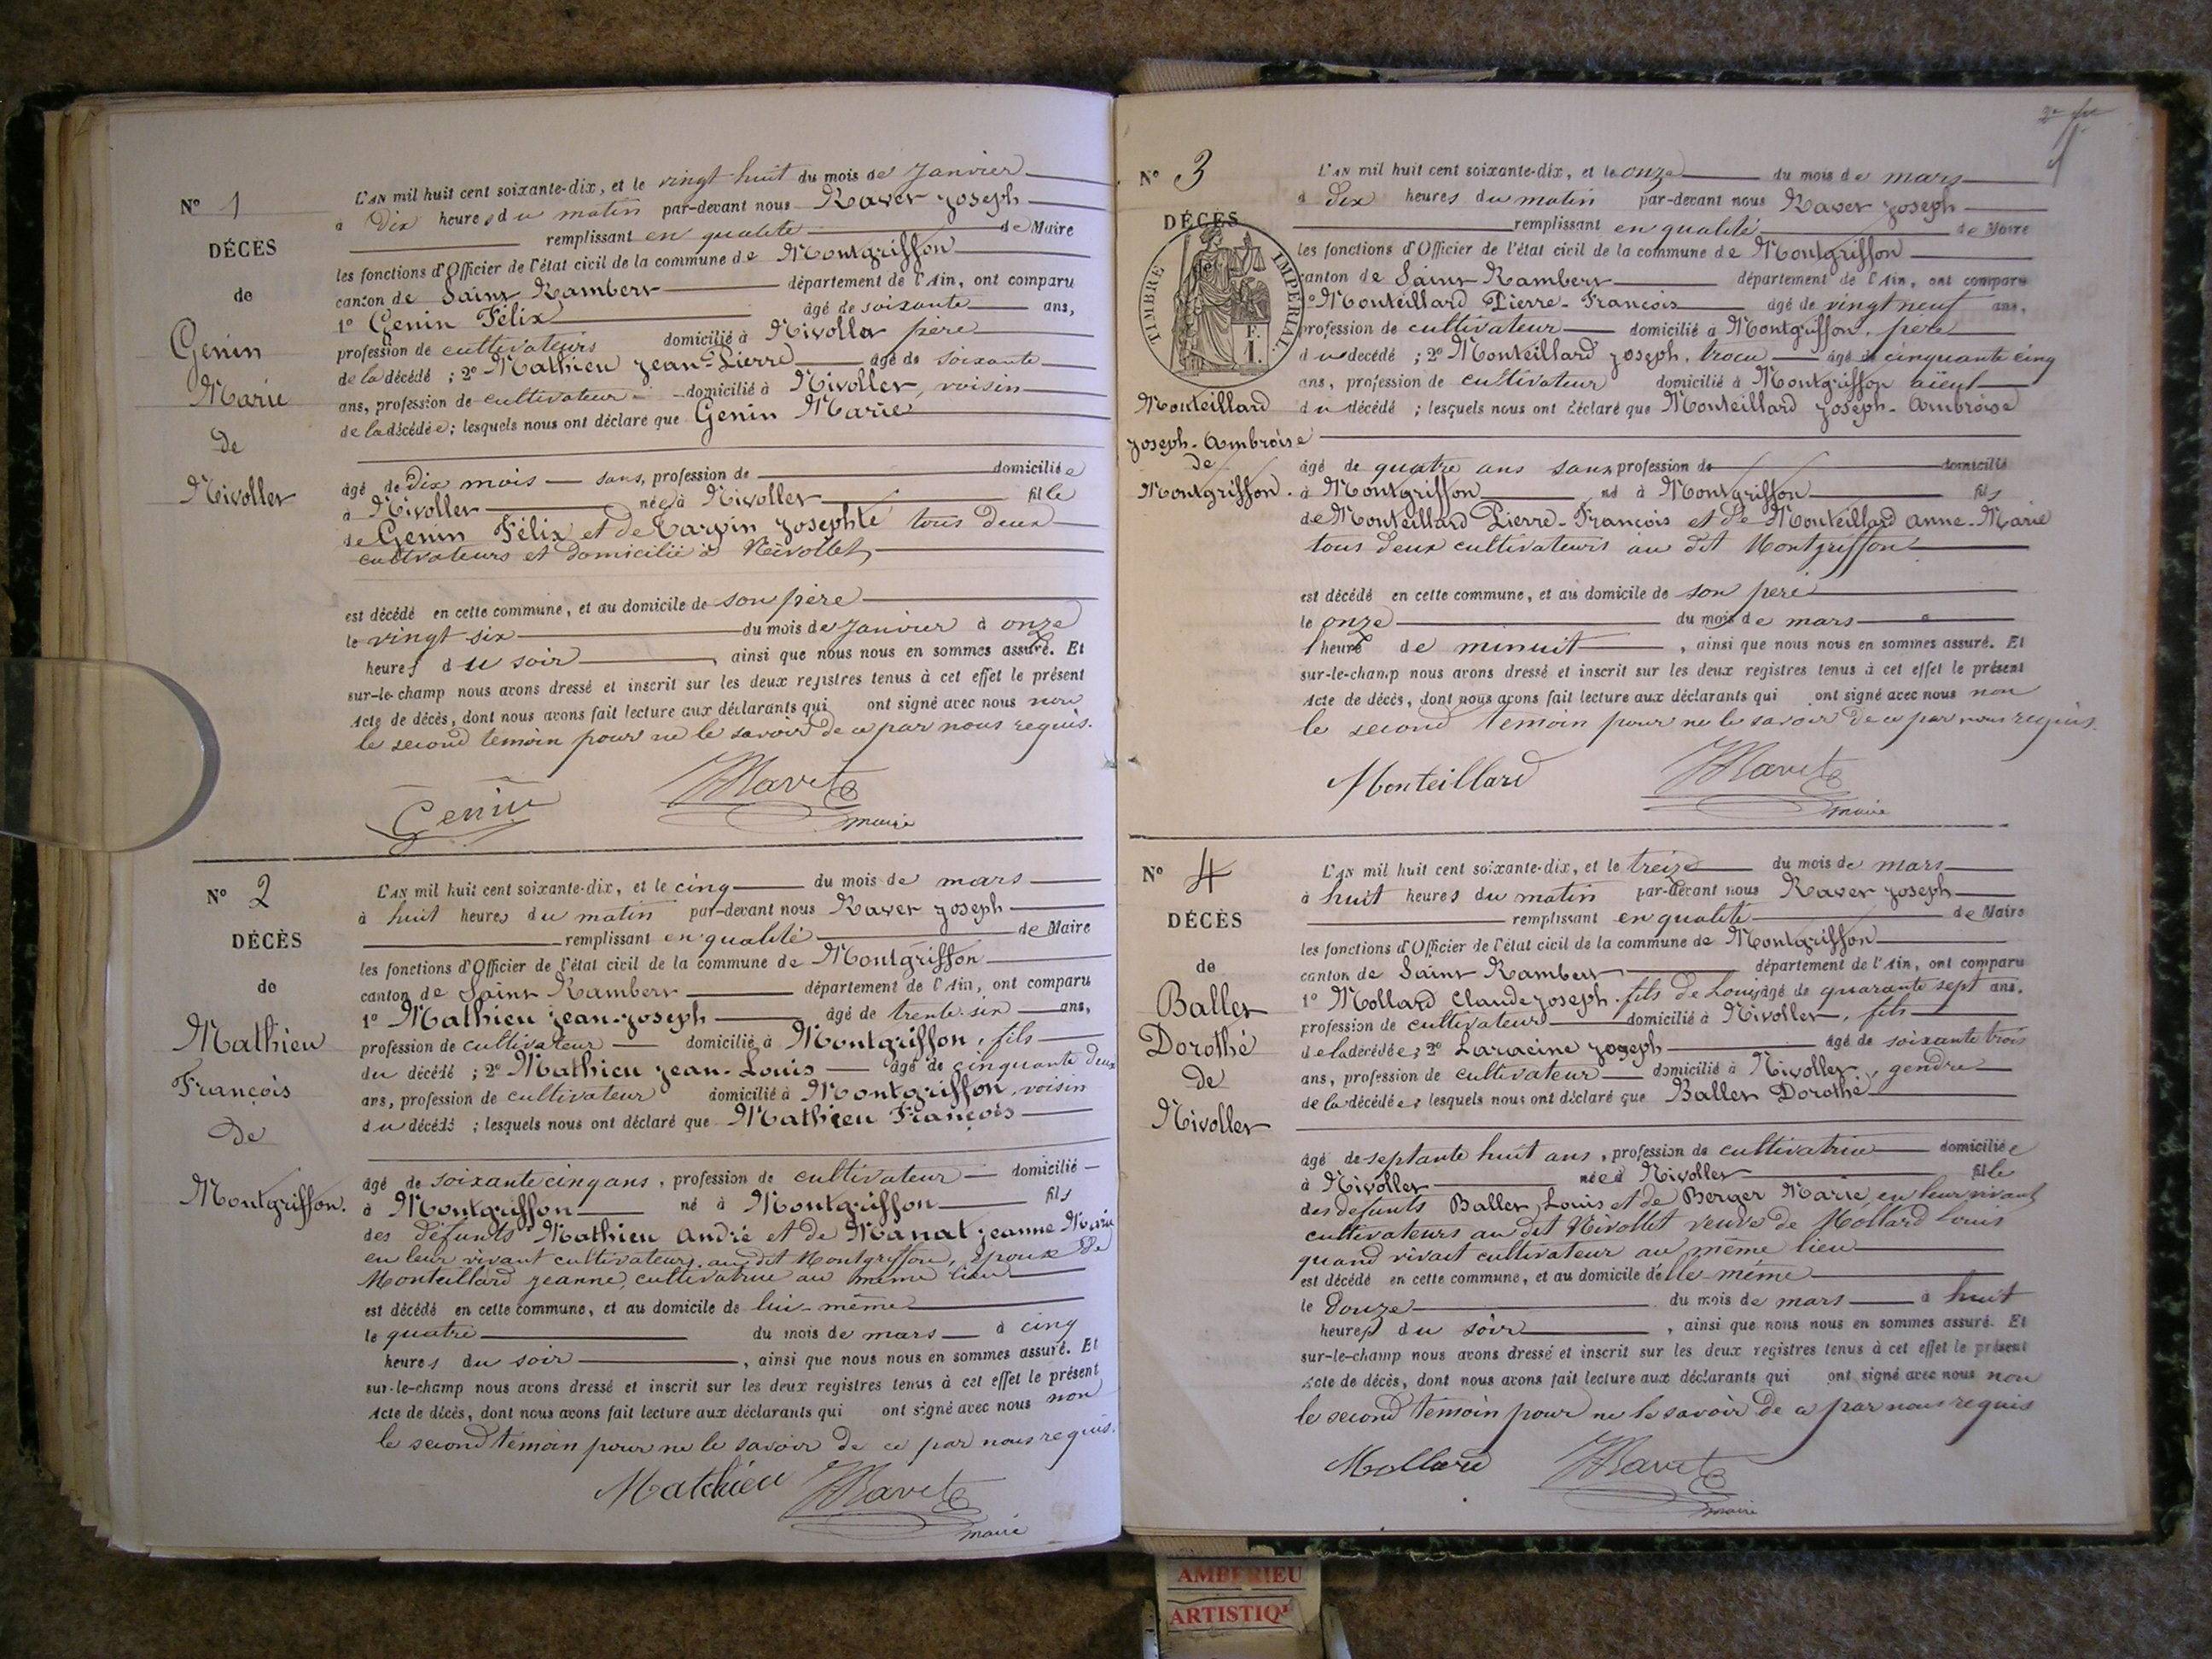 N° 1
DÉCÈS
de
Genin
Marie
de
Nivollet
L'AN mil huit cent soixante-dix, et le vingt huit du mois de Janvier
à Dix heures du matin par-devant nous Ravet Joseph
remplissant en qualité de Maire
les fonctions d'Officier de l'état civil de la commune de Montgriffon
canton de Saint Rambert département de l'Ain, ont comparu
1° Genin Félix âgé de soixante ans,
profession de cultivateurs domicilié à Nivollet père
de la décédé ; 2° Mathieu Jean-Pierre âgé de soixante
ans, profession de cultivateur domicilié à Nivollet, voisin
de la décédée ; lesquels nous ont déclaré que Genin Marie
âgé de Dix mois sans, profession de domiciliée
à Nivollet née à Nivollet fille
de Genin Félix et de Tarpin Josephte tous deux
cultivateurs et domicilié à Nivollet,
est décédé en cette commune, et au domicile de son père
le vingt six du mois de Janvier à onze
heures du soir, ainsi que nous nous en sommes assuré. Et
sur-le-champ nous avons dressé et inscrit sur les deux registres tenus à cet effet le présent
Acte de décès, dont nous avons fait lecture aux déclarants qui ont signé avec nous non
le second témoin pour ne le savoir de ce par nous requis.
Genin JRavet
maire
N° 2
DÉCÈS
de
Mathieu
François
de
Montgriffon.
L'AN mil huit cent soixante-dix, et le cinq du mois de mars
à huit heures du matin par-devant nous Ravet Joseph
remplissant en qualité de Maire
les fonctions d'Officier de l'état civil de la commune de Montgriffon
canton de Saint Rambert département de l'Ain, ont comparu
1° Mathieu Jean-Joseph âgé de trente-six ans,
profession de cultivateur domicilié à Montgriffon, fils
du décédé ; 2° Mathieu Jean-Louis âgé de cinquante deux
ans, profession de cultivateur domicilié à Montgriffon, voisin
du décédé ; lesquels nous ont déclaré que Mathieu François
âgé de soixante cinq ans, profession de cultivateur domicilié
à Montgriffon né à Montgriffon fils
des défunts Mathieu André et de Manat Jeanne Marie
en leur vivant cultivateurs au dit Montgriffon, époux de
Monteillard Jeanne, cultivatrice au même lieu
est décédé en cette commune, et au domicile de lui-même
le quatre du mois de mars à cinq
heures du soir, ainsi que nous nous en sommes assuré. Et
sur-le-champ nous avons dressé et inscrit sur les deux registres tenus à cet effet le présent
Acte de décès, dont nous avons fait lecture aux déclarants qui ont signé avec nous non
le second témoin pour ne le savoir de ce par nous requis.
Mathieu JRavet
maire
N° 3
DÉCÈS
de
TIMBRE IMPÉRIAL
F.
1.
Monteillard
Joseph-Ambroise
de
Montgriffon.
L'AN mil huit cent soixante-dix, et le onze du mois de mars
à dix heures du matin par-devant nous Ravet Joseph
remplissant en qualité de Maire
les fonctions d'Officier de l'état civil de la commune de Montgriffon
canton de Saint Rambert département de l'Ain, ont comparu
1° Monteillard Pierre-François âgé de vingt neuf ans,
profession de cultivateur domicilié à Montgriffon, père
du décédé ; 2° Monteillard Joseph, trocu âgé de cinquante cinq
ans, profession de cultivateur domicilié à Montgriffon aïeul
du décédé ; lesquels nous ont déclaré que Monteillard Joseph-Ambroise
âgé de quatre ans sans profession de domicilié
à Montgriffon né à Montgriffon fils
de Monteillard Pierre-François et de Monteillard Anne-Marie
tous deux cultivateurs au dit Montgriffon
est décédé en cette commune, et au domicile de son père
le onze du mois de mars
l'heure de minuit, ainsi que nous nous en sommes assuré. Et
sur-le-champ nous avons dressé et inscrit sur les deux registres tenus à cet effet le présent
Acte de décès, dont nous avons fait lecture aux déclarants qui ont signé avec nous non
le second témoin pour ne le savoir de ce par nous requis.
Monteillard JRavet
maire
N° 4
DÉCÈS
de
Ballet
Dorothé
de
Nivollet
L'AN mil huit cent soixante-dix, et le treize du mois de mars
à huit heures du matin par-devant nous Ravet Joseph
remplissant en qualité de Maire
les fonctions d'Officier de l'état civil de la commune de Montgriffon
canton de Saint Rambert département de l'Ain, ont comparu
1° Mollard Claude Joseph, fils de Louis âgé de quarante sept ans,
profession de cultivateur domicilié à Nivollet, fils
de la décédée ; 2° Laracine Joseph âgé de soixante trois
ans, profession de cultivateur domicilié à Nivollet, gendre
de la décédée ; lesquels nous ont déclaré que Ballet Dorothé
âgé de septante huit ans, profession de cultivatrice domiciliée
à Nivollet née à Nivollet fille
des défunts Ballet Louis et de Berger Marie en leur vivant
cultivateurs au dit Nivollet veuve de Mollard Louis
quand vivait cultivateur au même lieu
est décédé en cette commune, et au domicile d'elle-même
le douze du mois de mars à huit
heures du soir, ainsi que nous nous en sommes assuré. Et
sur-le-champ nous avons dressé et inscrit sur les deux registres tenus à cet effet le présent
Acte de décès, dont nous avons fait lecture aux déclarants qui ont signé avec nous non
le second témoin pour ne le savoir de ce par nous requis
Mollard JRavet
maire
AMBERIEU
ARTISTIQ